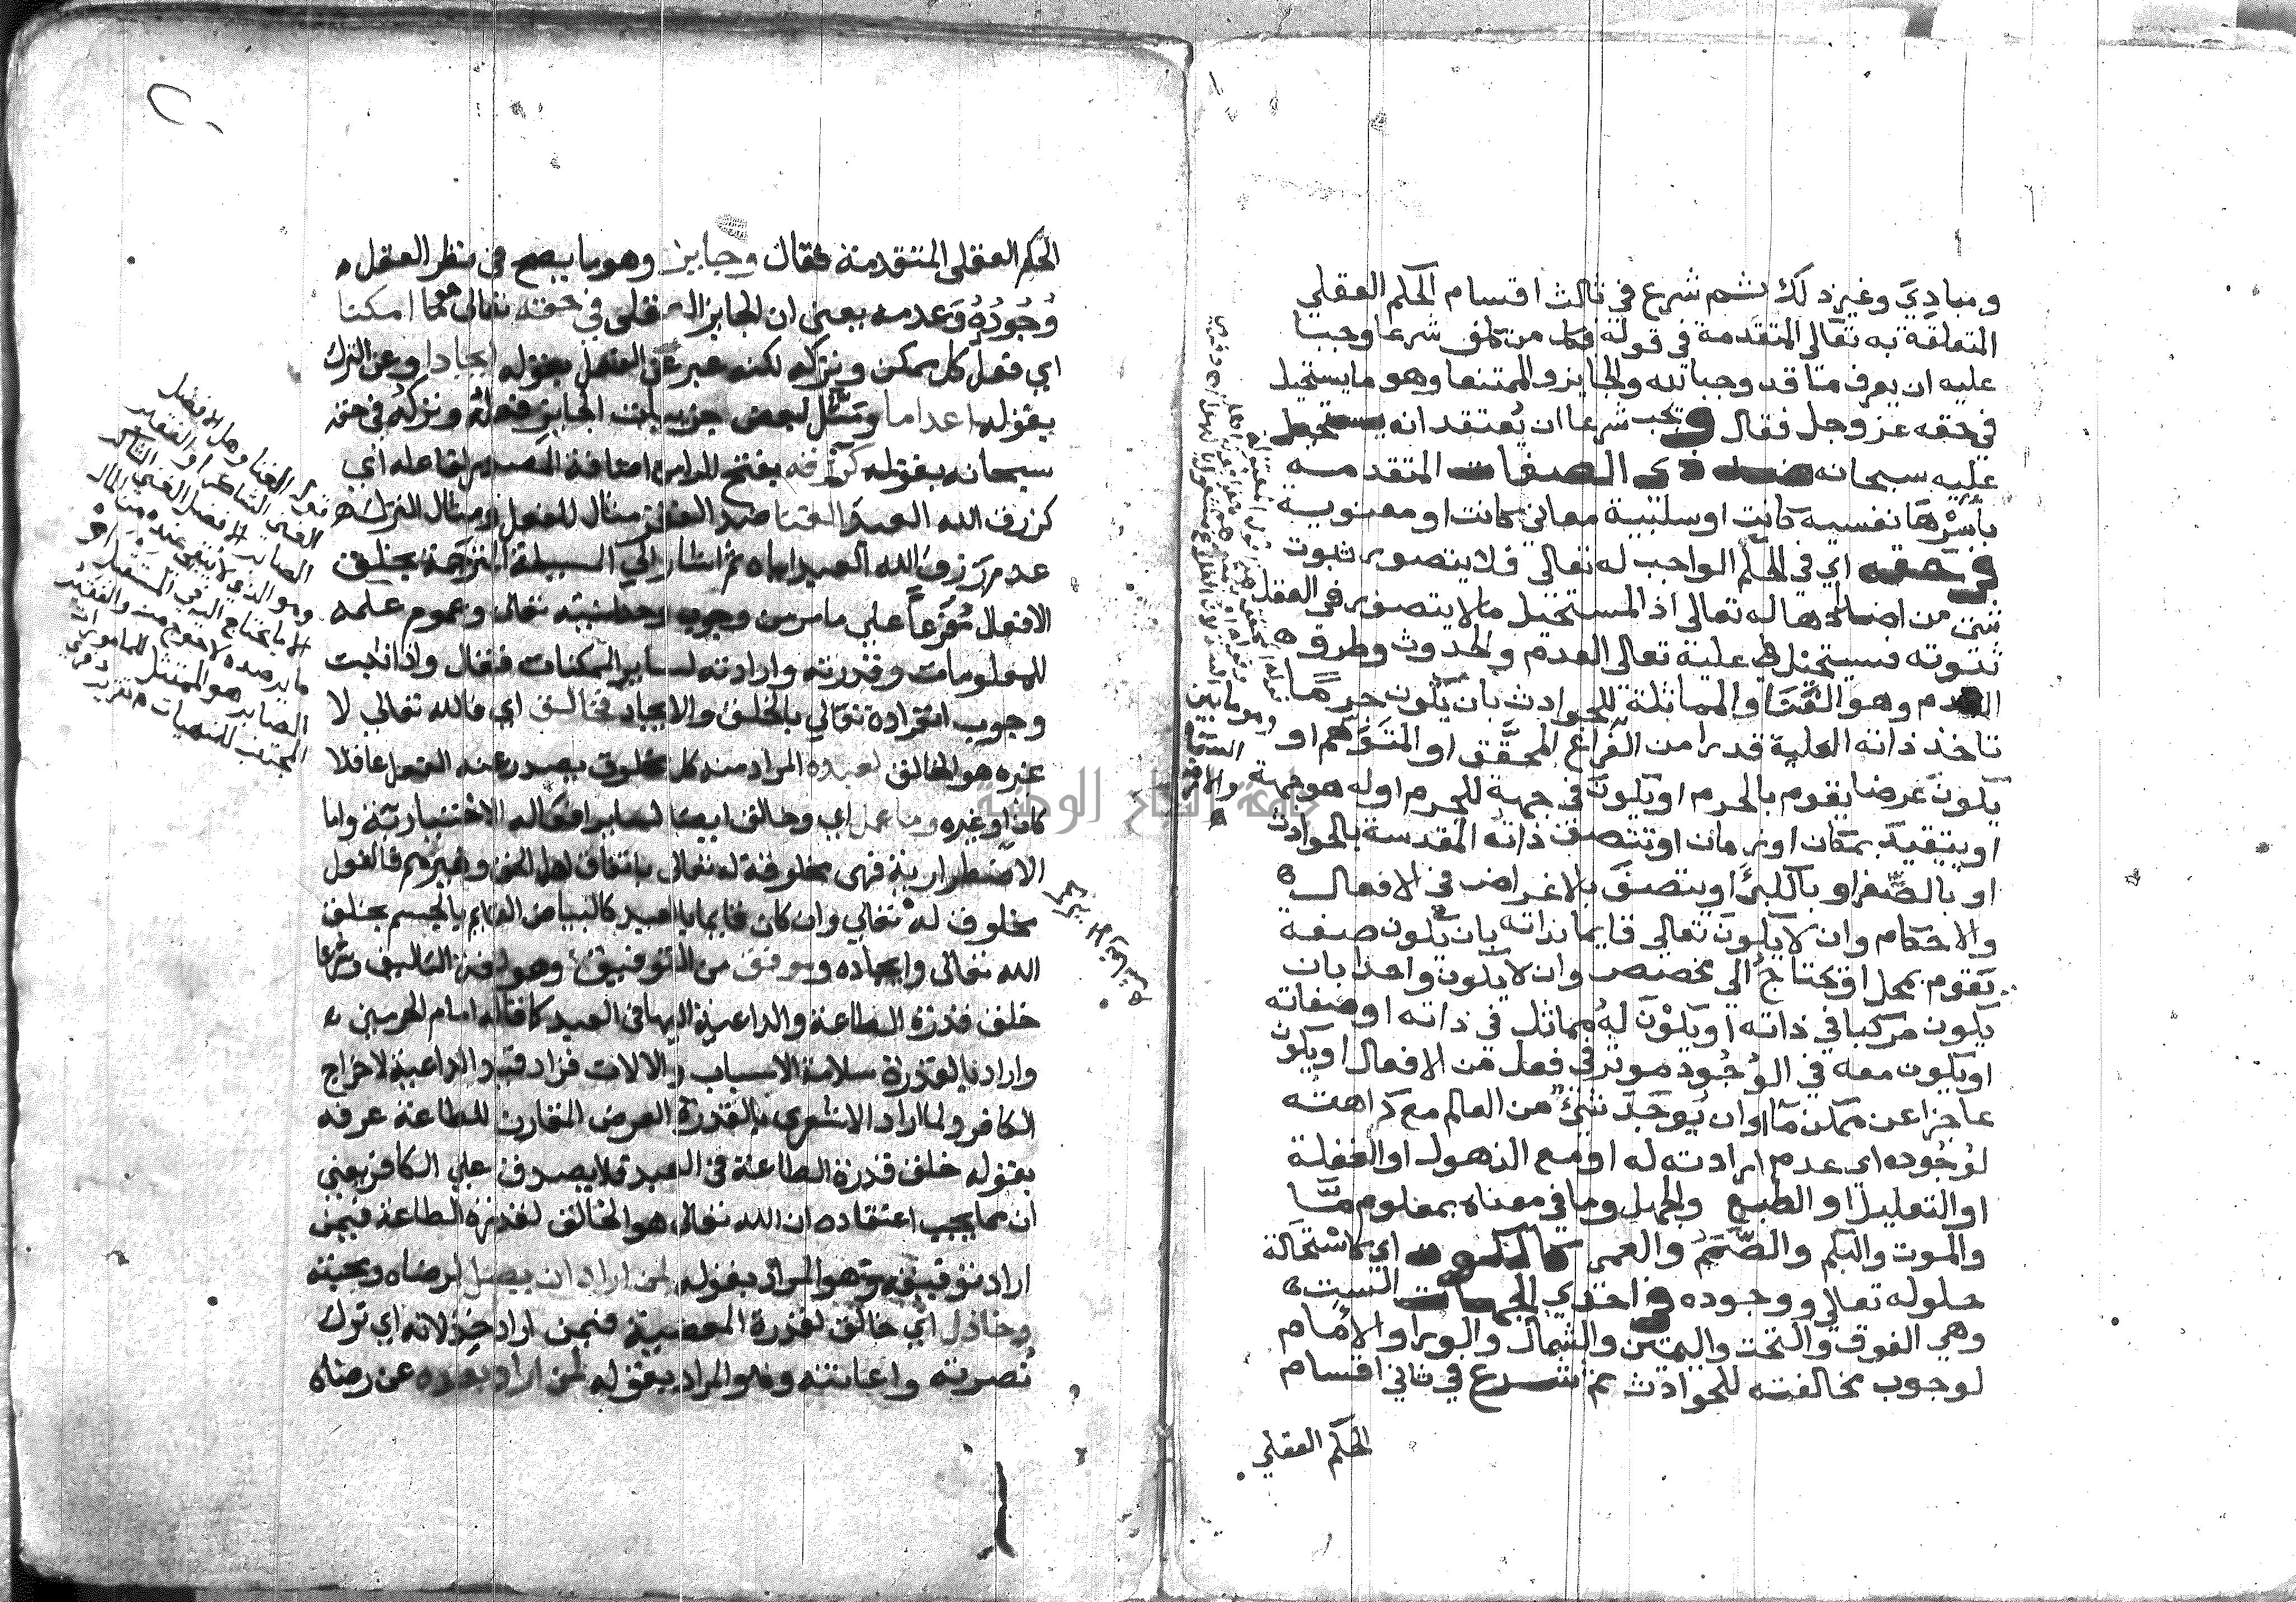 ومبادي وغير ذلك ثم شرع في ثالث اقسام الحكم العقلي
المتعلقة به تعالى المتقدمة في قوله فكل من كلف شرعا وجبا
عليه ان يعرف ما قد وجبا لله والجايز والممتنعا وهو ما يستحيل
في حقه عز وجل فقال ويجب شرعا ان يعتقد انه يستحيل
عليه سبحانه ضد ذي الصفات المتقدمة
بأسرها نفسية كانت او سلبية معاني كانت او معنوية
في حقه اي في الحكم الواجب له تعالى فلا يتصور ثبوت
شئ من اضدادها له تعالى اذ المستحيل ما لا يتصور في العقل
ثبوته فيستحيل عليه تعالى العدم والحدوث وطرو
العدم وهو الفنا والمماثلة للحوادث بان يكون جرما
تاخذ ذاته العلية قدرا من الفراغ المحقق او المتوهم او
يكون عرضا يقوم بالجرم او يكون في جهة للجرم او له هو جهة
او يتقيد بمكان او زمان او تتصف ذاته المقدسة بالحوادث
او بالصغر او بالكبر او يتصف بالاغراض في الافعال
والاحكام وان لا يكون تعالى قايما بذاته بان يكون صفة
يقوم بمحل او يحتاج الى مخصص وان لا يكون واحدا بان
يكون مركبا في ذاته او يكون له مماثل في ذاته او صفاته
او يكون معه في الوجود موثر في فعل من الافعال او يكون
عاجزا عن ممكن ما او ان يوجد شئ من العالم مع كراهته
لوجوده اي عدم ارادته له او مع الذهول او الغفلة
او التعليل او الطبع والجهل وما في معناه بمعلوم ما
والموت والبكم والصمم والعمى كالكون اي كاستحالة
حلوله تعالى ووجوده في احدي الجهات الست
وهي الفوق والتحت واليمين والشمال والورا والامام
لوجوب مخالفته للحوادث ثم شرع في ثاني اقسام
الحكم العقلي
الحكم العقلي المتقدمة فقال وجايز وهو ما يصح في نظر العقل
وجوده وعدمه يعني ان الجايز العقلي في حقه تعالى هو ما امكنا
اي فعل كل ممكن وتركه لكنه عبر عن الفعل بقوله ايجادا وعن الترك
بقوله اعداما ومثل لبعض جزييات الجايز فعله وتركه في حقه
سبحانه بقوله كرزقه بفتح الرا من اضافة المصدر لفاعله اي
كرزق الله العبد الغنا ضد الفقر مثال للفعل ومثال الترك
عدم رزق الله العبد اياه ثم اشار الي المسيلة المترجمة بخلق
الافعال مفرعا علي ما مر من وجوب وحدانيته تعالى وعموم علمه
للمعلومات وقدرته وارادته لساير الممكنات فقال واذا ثبت
وجوب انفراده تعالي بالخلق والايجاد فخالق اي فالله تعالي لا
غيره هو الخالق لعبده المراد منه كل مخلوق يصدر عنه الفعل عاقلا
كان او غيره وما عمل اي وخالق ايضا لساير افعاله الاختيارية واما
الاضطرارية فهي مخلوقة له تعالى باتفاق اهل الحق وغيرهم فالفعل
مخلوق له تعالي وان كان قايما بالعبد كالبياض القايم بالجسم بخلق
الله تعالى وايجاده وموفق من التوفيق وهو لغة التاليف وشرعا
خلق قدرة الطاعة والداعية اليها في العبد كما قاله امام الحرمين
واراد بالقدرة سلامة الاسباب والالات فزاد قيد الداعية لاخراج
الكافر ولما اراد الاشعري بالقدرة العرض المقارن للطاعة عرفه
بقوله خلق قدرة الطاعة في العبد فلا يصدق علي الكافر يعني
ان مما يجب اعتقاده ان الله تعالى هو الخالق لقدرة الطاعة فيمن
اراد توفيقه وهو المراد بقوله لمن اراد ان يصل لرضاه ومحبته
وخاذل اي خالق لقدرة المعصية فيمن اراد خذلانه اي ترك
نصرته واعانته وهو المراد بقوله لمن اراد بعده عن رضاه
قوله الغنا وهل الافضل
الغني الشاكر او الفقير
الصابر الافضل الغني الشاكر
وهو الذي لا يبقي عنده من المال
الا ما يحتاج اليه في المستقبل او
ما يرصده لاحوج منه والفقير
الصابر هو الممتثل للمامورات
المجتنب للمنهيات
جامعة النجاح الوطنية